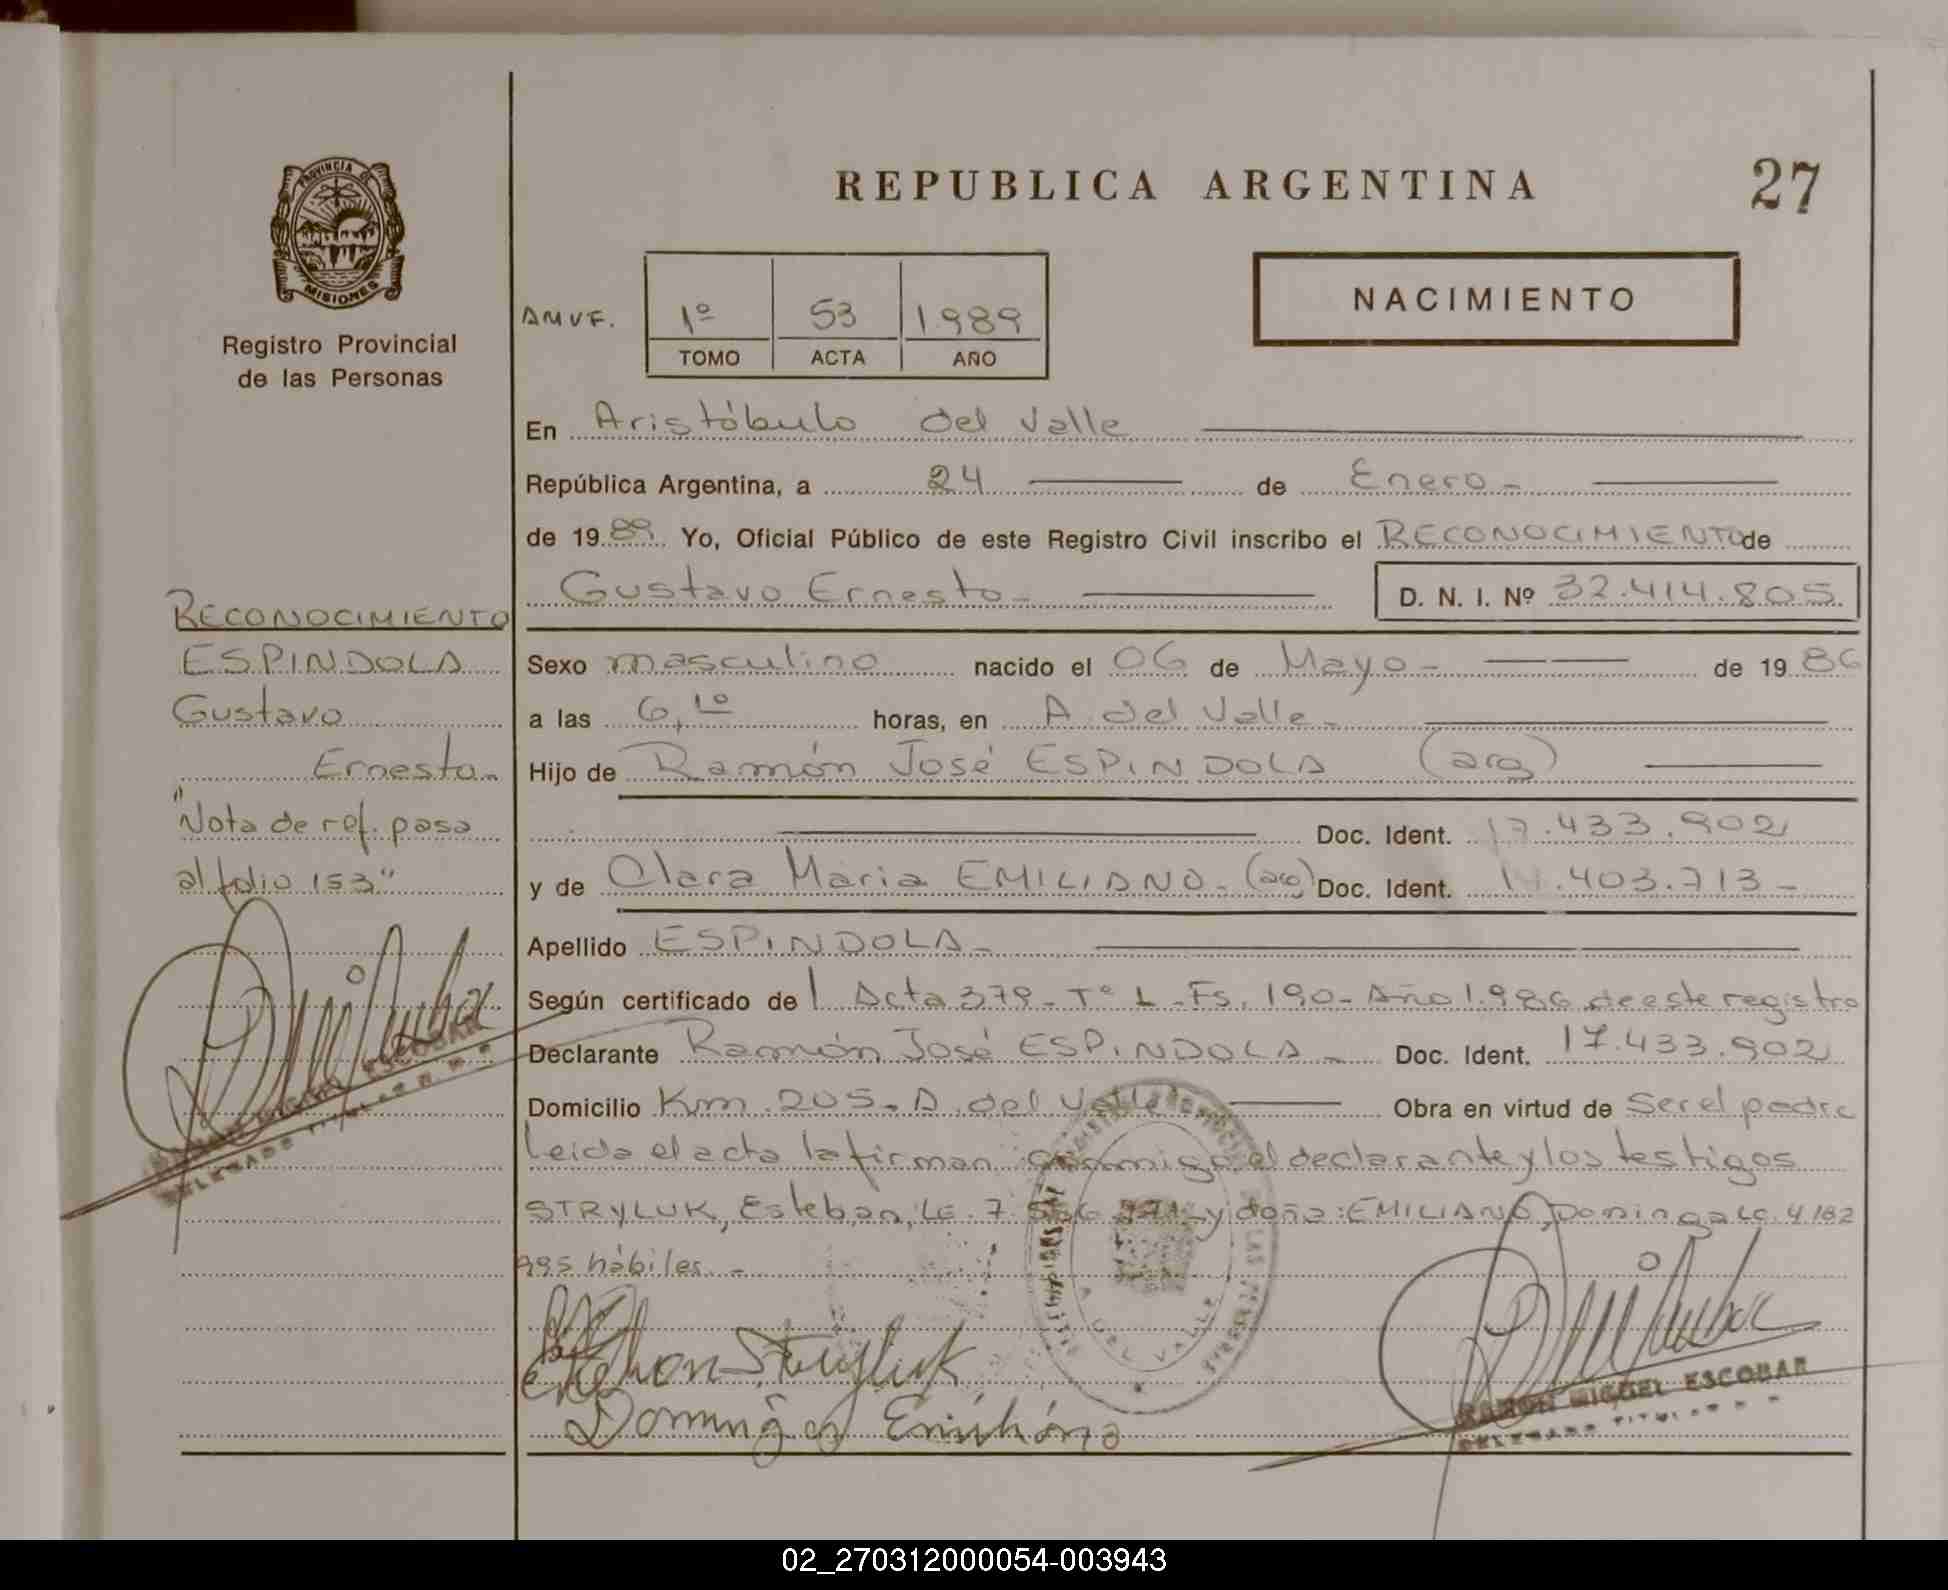 REPUBLICA ARGENTINA
27
PROVINCIA DE
MISIONES
Registro Provincial
de las Personas
AMVF.
1º 53 1.989
TOMO ACTA AÑO
NACIMIENTO
En Aristóbulo del Valle
República Argentina, a 24 de Enero-
de 1989. Yo, Oficial Público de este Registro Civil inscribo el RECONOCIMIENTO de
Gustavo Ernesto- D. N. I. Nº 32.414.805
Sexo masculino nacido el 06 de Mayo- de 1986
a las 6,10 horas, en A. del Valle-
Hijo de Ramón José ESPINDOLA (arg)
Doc. Ident. 17.433.902
y de Clara Maria EMILIANO-(arg) Doc. Ident. .403.713-
Apellido ESPINDOLA-
Según certificado de Acta 379- Tº 1-Fs. 190- Año 1.986 de este registro
Declarante Ramón José ESPINDOLA- Doc. Ident. 17.433.902
Domicilio Km. 205- A. del Valle Obra en virtud de Ser el padre
leida el acta la firman conmigo el declarante y los testigos
STRYLUK, Esteban, LE. 7 y doña: EMILIANO, Dominga LC. 4.182
995 hábiles.-
RECONOCIMIENTO
ESPINDOLA
Gustavo
Ernesto-
"Nota de ref. pasa
al folio 153"
ESCOBAR
DELEGADO TITULAR
A. DEL VALLE
Esteban Stryluk
Dominga Emiliano
RAMON MIGUEL ESCOBAR
DELEGADO TITULAR
02_270312000054-003943